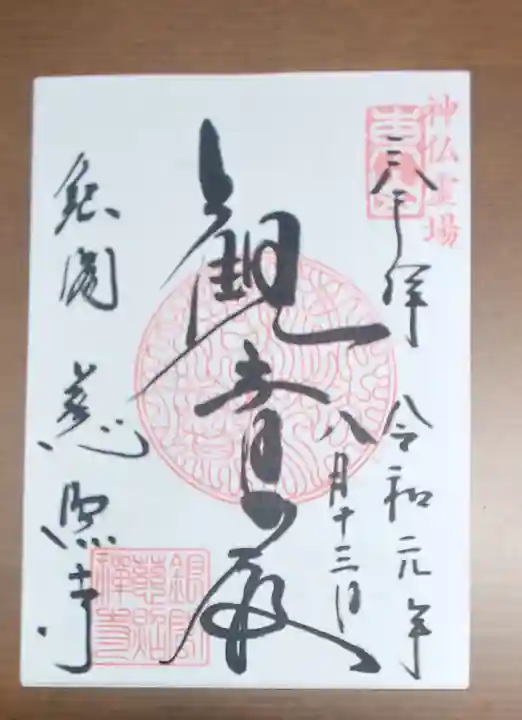 神仏霊場
奉拝 令和元年
八月十三日
観音殿
銀閣 慈照寺
銀閣
慈照
禅寺